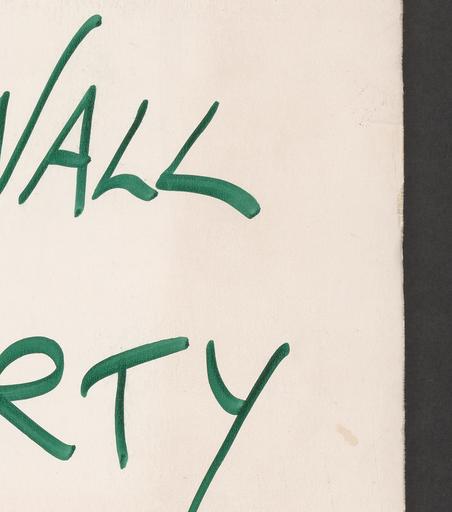 WALL
RTY